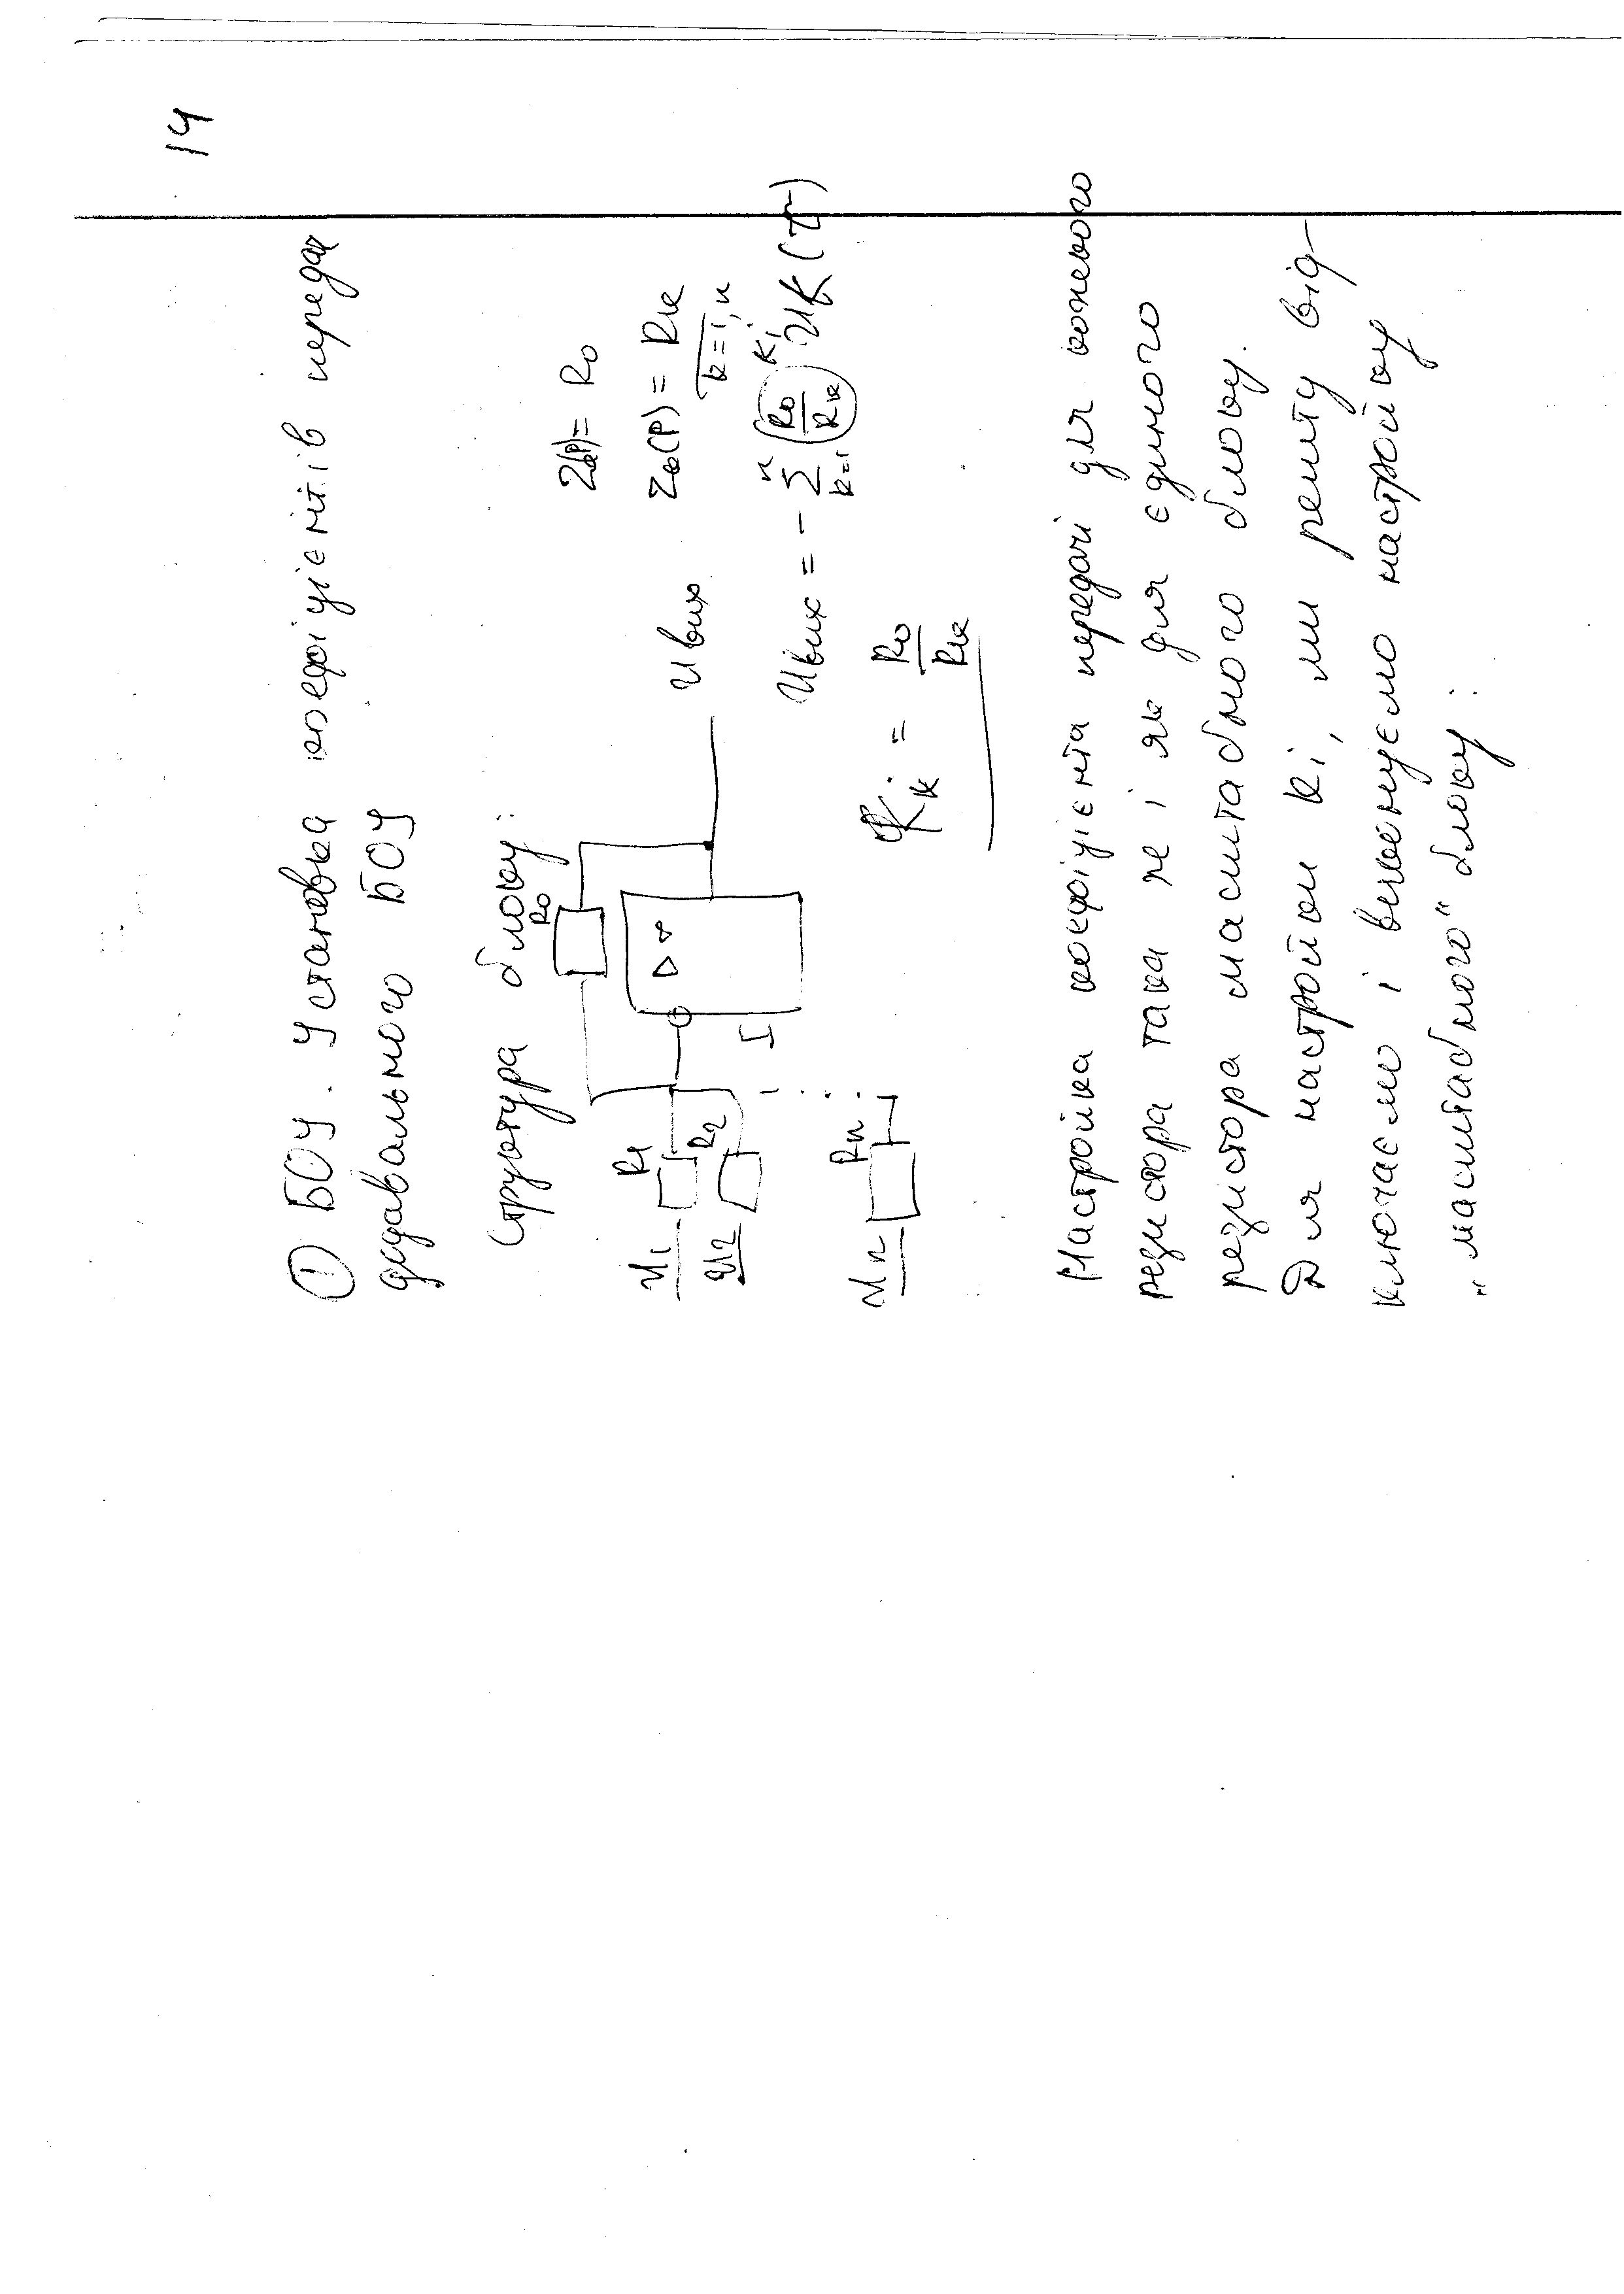 14
① БОУ. Установка коефіцієнтів переда
додавального БОУ
Структура блоку:
R0
Z0(P) = R0
U1 R1
Uвих
Zk(P) = Rk
k=1,n
U2 R2
I
Uвих = - Σ (R0/Rk) Ki Uk(t)
n
k=1
Un Rn
Kk = R0/Rk
Настройка коефіцієнта передачі для кожного
резистора така же і як для єдиного
резістора масштабного блоку.
Для настройки Ki, ми решту від-
ключаємо і виконуємо настройку
„масштабного" блоку: